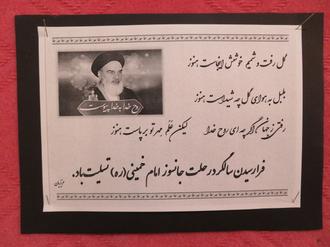 گل رفت و شمیم خوشش اینجاست هنوز
بلبل به هوای گل چه شیداست هنوز
رفتی ز جهان گرچه ای روح خدا
لیکن علم مهر تو برپاست هنوز
روح خدا به خدا پیوست
فرارسیدن سالگرد رحلت جانسوز امام خمینی (ره) تسلیت باد.